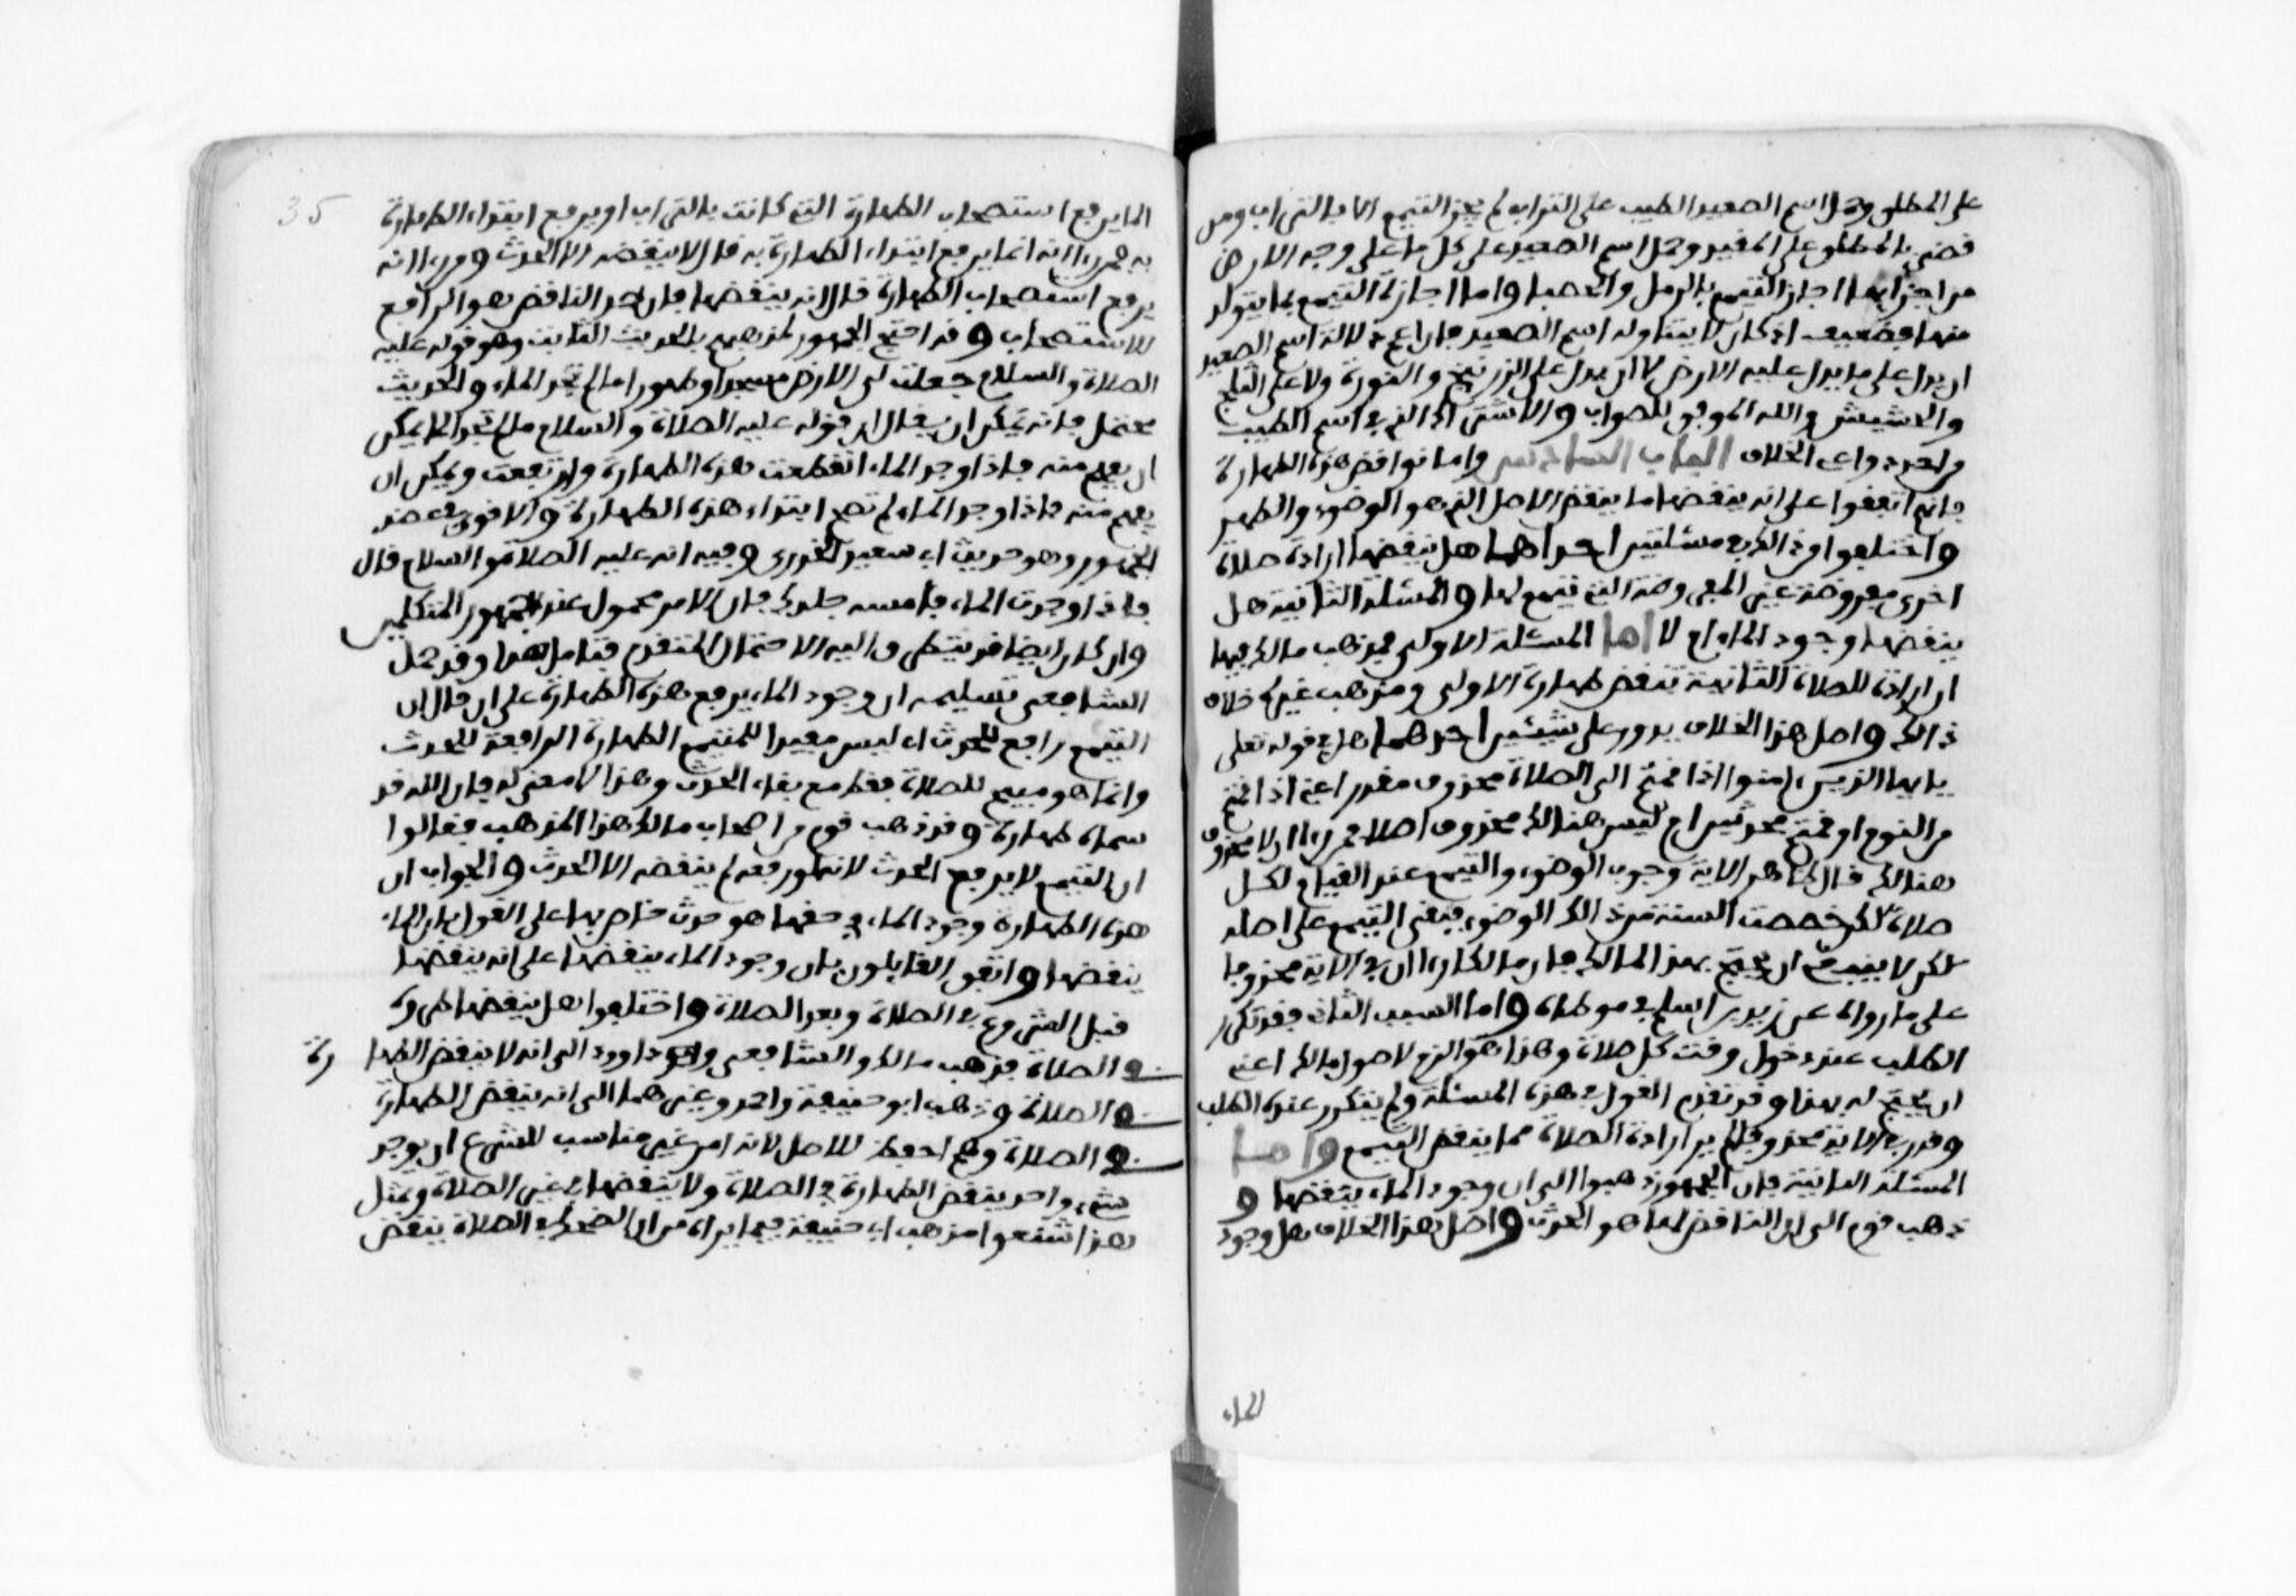 على المطلق وحمل اسم الصعيد الطيب على التراب لم يجز التيمم الا بالتراب ومن
قضى بالمطلق على المقيد وحمل اسم الصعيد على كل ما على وجه الارض
من اجزايها اجاز التيمم بالرمل والحصبا واما اجازة التيمم بما يتولد
منها فضعيف اذ كان لا يتناوله اسم الصعيد فان اعم دلالة اسم الصعيد
ان يدل على ما يدل عليه الارض لا ان يدل على الزرنيخ والنورة ولا على الثلج
والحشيش والله الموفق للصواب والاشتراك الذي في اسم الطيب
من احد دواعي الخلاف الباب السادس واما نواقض هذه الطهارة
فانهم اتفقوا على انه ينقضها ما ينقض الاصل الذي هو الوضوء والطهر
واختلفوا من ذالك في مسئلتين احداهما هل ينقضها ارادة صلاة
اخرى مفروضة غير المفروضة التي تيمم لها والمسئلة الثانية هل
ينقضها وجود الماء ام لا اما المسئلة الاولى فمذهب مالك فيها
ان ارادة الصلاة الثانية تنقض طهارة الاولى ومذهب غيره خلاف
ذالك واصل هذا الخلاف يدور على شيئين احدهما هل في قوله تعلى
يايها الذين ءامنوا اذا قمتم الى الصلاة محذوف مقدر اعني اذا قمتم
من النوم او قمتم محدثين ام ليس هنالك محذوف اصلا فمن رءا ان لا محذوف
هنالك قال ظاهر الاية وجوب الوضوء والتيمم عند القيام لكل
صلاة لكن خصصت السنة من ذالك الوضوء فبقي التيمم على اصله
لكن لا ينبغي ان يحتج بهذا لمالك فان مالكا رءا ان في الاية محذوفا
على ما رواه عن زيد بن اسلم في موطاه واما السبب الثاني فهو تكرار
الطلب عند دخول وقت كل صلاة وهذا هو الزم لاصول مالك اعني
ان يحتج له بهذا وقد تقدم القول في هذه المسئلة ولم يتكرر عنده الطلب
وقدر في الاية محذوفا لم ير ارادة الصلاة مما ينقض التيمم واما
المسئلة الثانية فان الجمهور ذهبوا الى ان وجود الماء ينقضها و
ذهب قوم الى ان الناقض لها هو الحدث واصل هذا الخلاف هل وجود
الماء
35
الما يرفع استصحاب الطهارة التي كانت بالتراب او يرفع ابتداء الطهارة
به فمن رءا انه انما يرفع ابتداء الطهارة به قال لا ينقضه الا الحدث ومن رءا انه
يرفع استصحاب الطهارة قال انه ينقضها فان حد الناقض هو الرافع
للاستصحاب وقد احتج الجمهور لمذهبهم بالحديث الثابت وهو قوله عليه
الصلاة والسلام جعلت لي الارض مسجدا وطهورا ما لم تجد الماء والحديث
محتمل فانه يمكن ان يقال ان قوله عليه الصلاة والسلام ما لم تجد الما يمكن
ان يفهم منه فاذا وجد الماء انقطعت هذه الطهارة وارتفعت ويمكن ان
يفهم منه فاذا وجد الماء لم تصح ابتداء هذه الطهارة والاقوى في عضد
الجمهور وهو حديث ابي سعيد الخدري وفيه انه عليه الصلاة والسلام قال
فاذا وجدت الماء فامسه جلدك فان الامر محمول عند جمهور المتكلمين
وان كان ايضا قد يتطرق اليه الاحتمال المتقدم فتامل هذا وقد حمل
الشافعي تسليمه ان وجود الماء يرفع هذه الطهارة على ان قال ان
التيمم رافع للحدث اي ليس مفيدا للمتيمم الطهارة الرافعة للحدث
وانما هو مبيح للصلاة فقط مع بقاء الحدث وهذا لا معنى له فان الله قد
سماه طهارة وقد ذهب قوم من اصحاب مالك هذا المذهب فقالوا
ان التيمم لا يرفع الحدث لانه لو رفعه لم ينقضه الا الحدث والجواب ان
هذه الطهارة وجود الماء في حقها هو حدث خاص بها على القول بان الماء
ينقضها واتفق القايلون بان وجود الماء ينقضها على انه ينقضها
قبل الشروع في الصلاة وبعد الصلاة واختلفوا هل ينقضها طروه
في الصلاة فذهب مالك والشافعي وداوود الى انه لا ينقض الطها رة
في الصلاة وذهب ابو حنيفة واحمد وغيرهما الى انه ينقض الطهارة
في الصلاة وهم احفظ للاصل لانه امر غير مناسب للشرع ان يوجد
شيء واحد ينقض الطهارة في الصلاة ولا ينقضها في غير الصلاة وبمثل
هذا شنعوا مذهب ابي حنيفة فيما يراه من ان الضحك في الصلاة ينقض